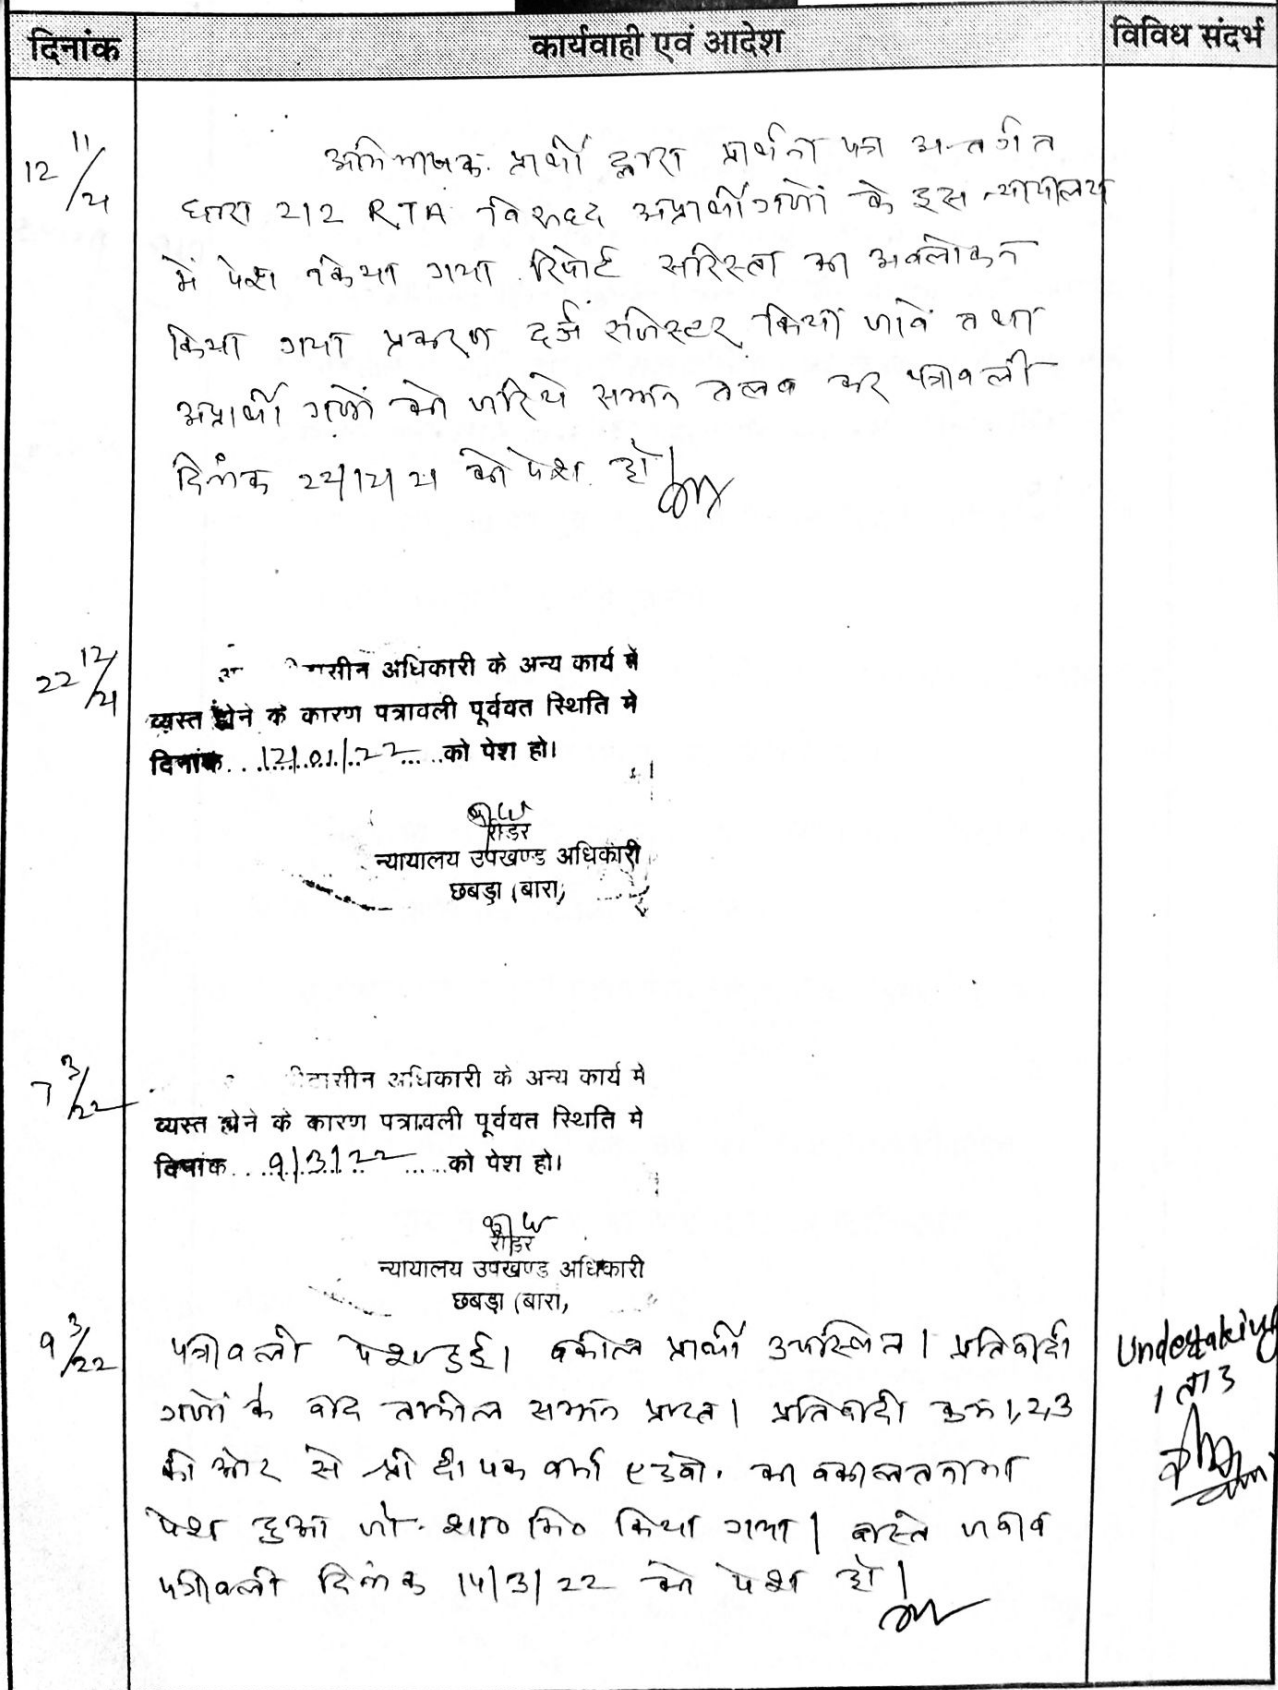 दिनांक कार्यवाही एवं आदेश विविध संदर्भ
12 11/21 अभिभाषक प्रार्थी द्वारा प्रार्थना पत्र अन्तर्गत
धारा 212 RTA विरुद्द अप्रार्थीगणों के इस न्यायालय
में पेश किया गया रिपोर्ट सरिस्ता का अवलोकन
किया गया प्रकरण दर्ज रजिस्टर किया जावे तथा
अप्रार्थी गणों को जरिये सम्मन तलब कर पत्रावली
दिनांक 22/12/21 को पेश हो।
22 12/21 सीन अधिकारी के अन्य कार्य में
व्यस्त होने के कारण पत्रावली पूर्ववत स्थिति मे
दिनांक...12/01/22.....को पेश हो।
रीडर
न्यायालय उपखण्ड अधिकारी
छबड़ा (बारा)
7 3/22 ठासीन अधिकारी के अन्य कार्य मे
व्यस्त होने के कारण पत्रावली पूर्ववत स्थिति मे
दिनांक...9/3/22.....को पेश हो।
रीडर
न्यायालय उपखण्ड अधिकारी
छबड़ा (बारा,
9 3/22 पत्रावली पेश हुई। वकील प्रार्थी उपस्थित। प्रतिवादी
गणों के बाद तामील सम्मन प्राप्त। प्रतिवादी क्रम 1,2,3
की ओर से श्री दीपक वर्मा एडवो. का वकालतनामा
पेश हुआ जो शा० मि० किया गया। वास्ते जवाब
पत्रावली दिनांक 14/3/22 को पेश हो।
Undertaking
1 ता 3